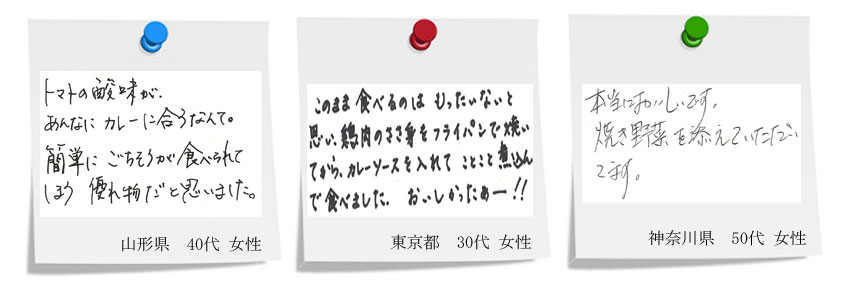 トマトの酸味が、
あんなに カレーに合うなんて。
簡単に ごちそうが 食べられて
しまう 優れ物だと思いました。
山形県　40代 女性
このまま 食べるのは もったいないと
思い、鶏肉のささ身をフライパンで焼い
てから、カレーソースを入れて ことこと 煮込ん
で食べました。 おいしかったぁー!!
東京都　30代 女性
本当においしいです。
焼き野菜を添えていただい
てます。
神奈川県　50代 女性